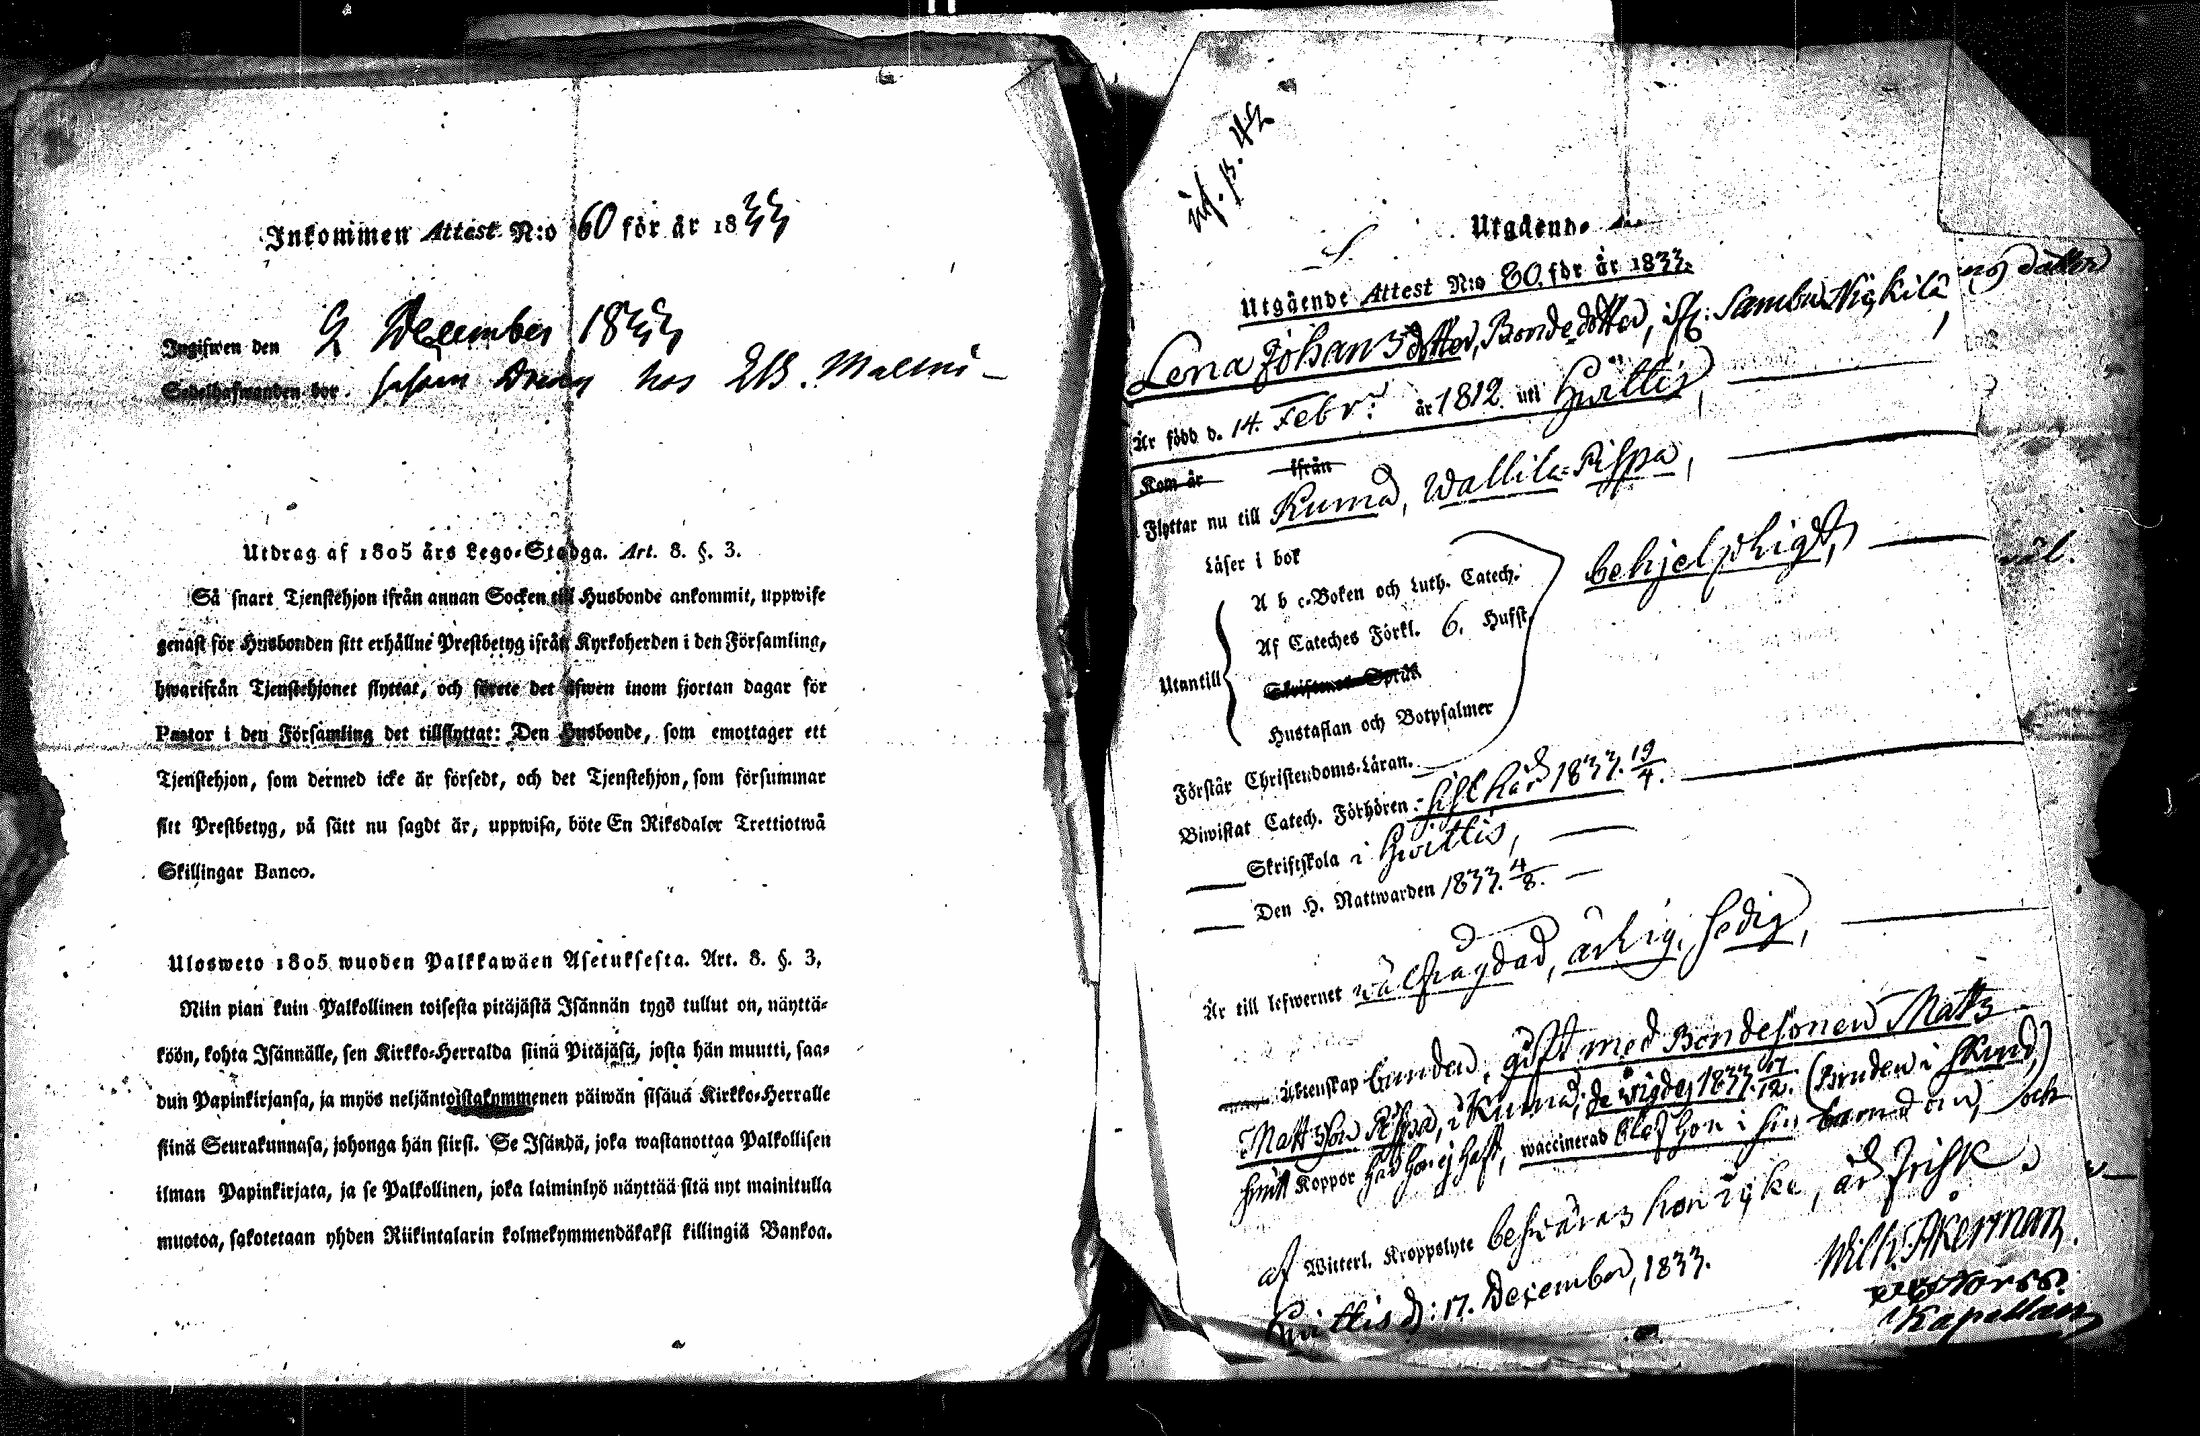 Inkommen Attest N:o 60 för år 1833
Ingifwen den 9 December 1833
Sedelhafwanden bor såsom Dräng hos Malmi
Utdrag af 1805 års Lego-Stadga. Art. 8. §. 3.
Så snart Tjenstehjon ifrån annan Socken till Husbonde ankommit, uppwise
genast för Husbonden sitt erhållne Prestbetyg ifrån Kyrkoherden i den Församling,
hwarifrån Tjenstehjonet flyttat, och förete det äfwen inom fjortan dagar för
Pastor i den Församling det tillflyttat: Den Husbonde, som emottager ett
Tjenstehjon, som dermed icke är försedt, och det Tjenstehjon, som försummar
sitt Prestbetyg, på sätt nu sagdt är, uppwisa, böte En Riksdaler Trettiotwå
Skillingar Banco.
Ulosweto 1805 wuoden Palkkawäen Asetuksesta. Art. 8. §. 3.
Niin pian kuin Palkollinen toisesta pitäjästä Isännän tygö tullut on, näyttä-
köön, kohta Isännälle, sen Kirkko-Herralda siinä Pitäjäsä, josta hän muutti, saa-
dun Papinkirjansa, ja myös neljäntoistakymmenen päiwän sisäuä Kirkko-Herralle
siinä Seurakunnasa, johonga hän siirsi. Se Isändä, joka wastanottaa Palkollisen
ilman Papinkirjata, ja se Palkollinen, joka laiminlyö näyttää sitä nyt mainitulla
muotoa, sakotetaan yhden Riikintalarin kolmekymmendäkaksi killingiä Bankoa.
Utgående
Utgående Attest N:o 80 för år 1833.
Lena Johansdotter, Bondedotter, ifr. Sambu Nickilä,
Är född d. 14 Febr: år 1812 uti Hvittis,
Kom år ifrån
Flyttar nu till Kumo, Wallila-Pispa,
Läser i bok
A b c-Boken och Luth. Catech.
behjelpligt,
Af Cateches Förkl. 6. Hufst.
Utantill
Skriftenes Språk
Hustaflan och Botpsalmer
Förstår Christendoms-Läran.
Biwistat Catech. Förhören: sist här 1833 19/4.
Skriftskola i Hvittis,
Den H. Nattwarden 1833 4/8.
Är till lefwernet wälfrägdad, ärlig, sedig,
Äktenskap bunden, gift med Bondesonen Matts
Mattsson Pispa, i Kumo, de wigdes 1833 17/12. (Bruden i skrud,)
smitt Koppor har hon ej haft, waccinerad blef hon i sin barndom, och
af Witterl. Kroppslyte beswäras hon icke, är frisk.
Hvittis d: 17. December, 1833.
Wilh. Åkerman.
Kapellan